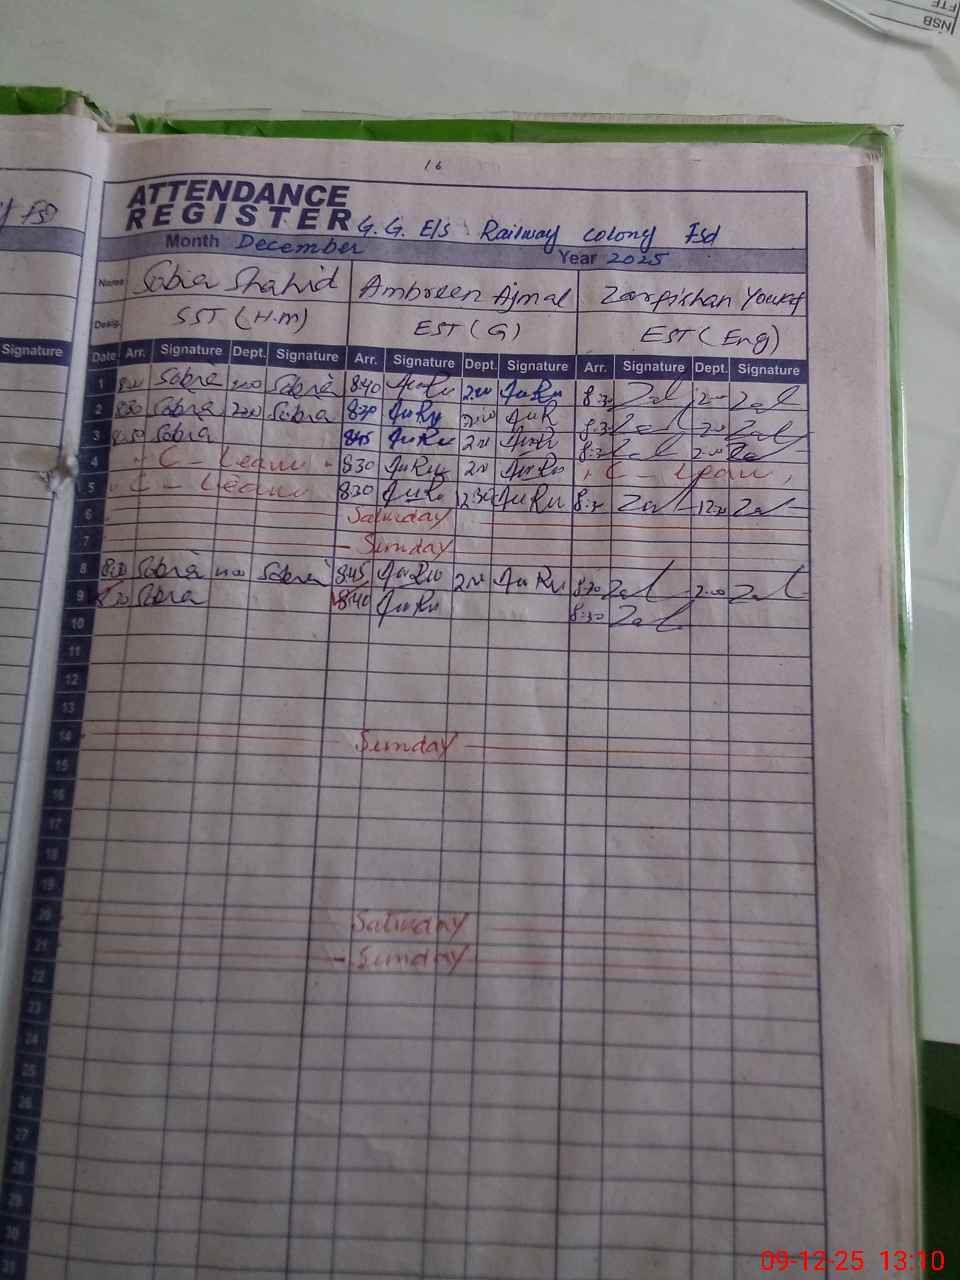 NSB
FTF
16
y Fsd
ATTENDANCE
REGISTER G. G. E/S Railway colony Fsd
Month December Year 2025
Name Sabia Shahid Ambreen Ajmal Zarfishan Yousaf
Desig. SST (H.M) EST (G) EST (Eng)
Signature
Date Arr. Signature Dept. Signature Arr. Signature Dept. Signature Arr. Signature Dept. Signature
1 Sabra 200 Sabra 840 200 8:30 Zal 2:00 Zal
2 830 Sabra 200 Sabra 830 2:00 8:30 Zal 200 Zal
3 Sabra 845 200 8:30 Zal 2:00 Zal
4 C - Leave 830 200 C - Leave
5 C - Leave 830 12:30 8:30 Zal 12:30 Zal
6 Saturday
7 Sunday
8 Sabra Sabra 845 200 8:30 Zal 2:00 Zal
9 830 Sabra 840 8:30 Zal
10
11
12
13
14 Sunday
15
16
17
18
19
20 Saturday
21 Sunday
22
23
24
25
26
27
28
29
30
31
09-12-25 13:10